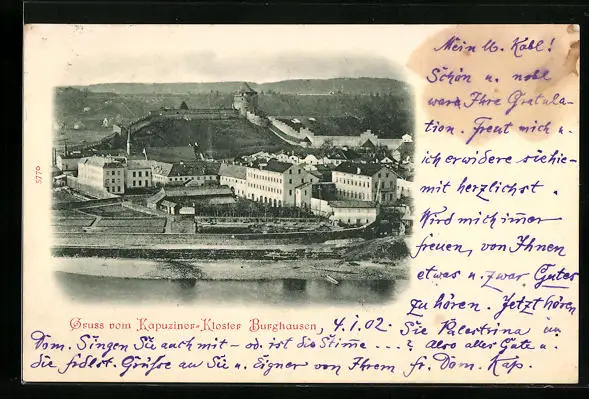 Mein l. Kobl!
Schön u. nobl
war Ihre Gratula-
tion. Freut mich u.
ich erwidere sie hie-
mit herzlichst.
Wird mich immer
freuen, von Ihnen
etwas u. zwar Gutes
zu hören. Jetzt hören
5770
Gruss vom Kapuziner-Kloster Burghausen, 4.1.02. Sie Palestrina im
Dom. Singen Sie auch mit – od. ist die Stimme ...? Also alles Gute u.
die Grüsse an Sie u. Eigner von Ihrem fr. Dom. Kap.